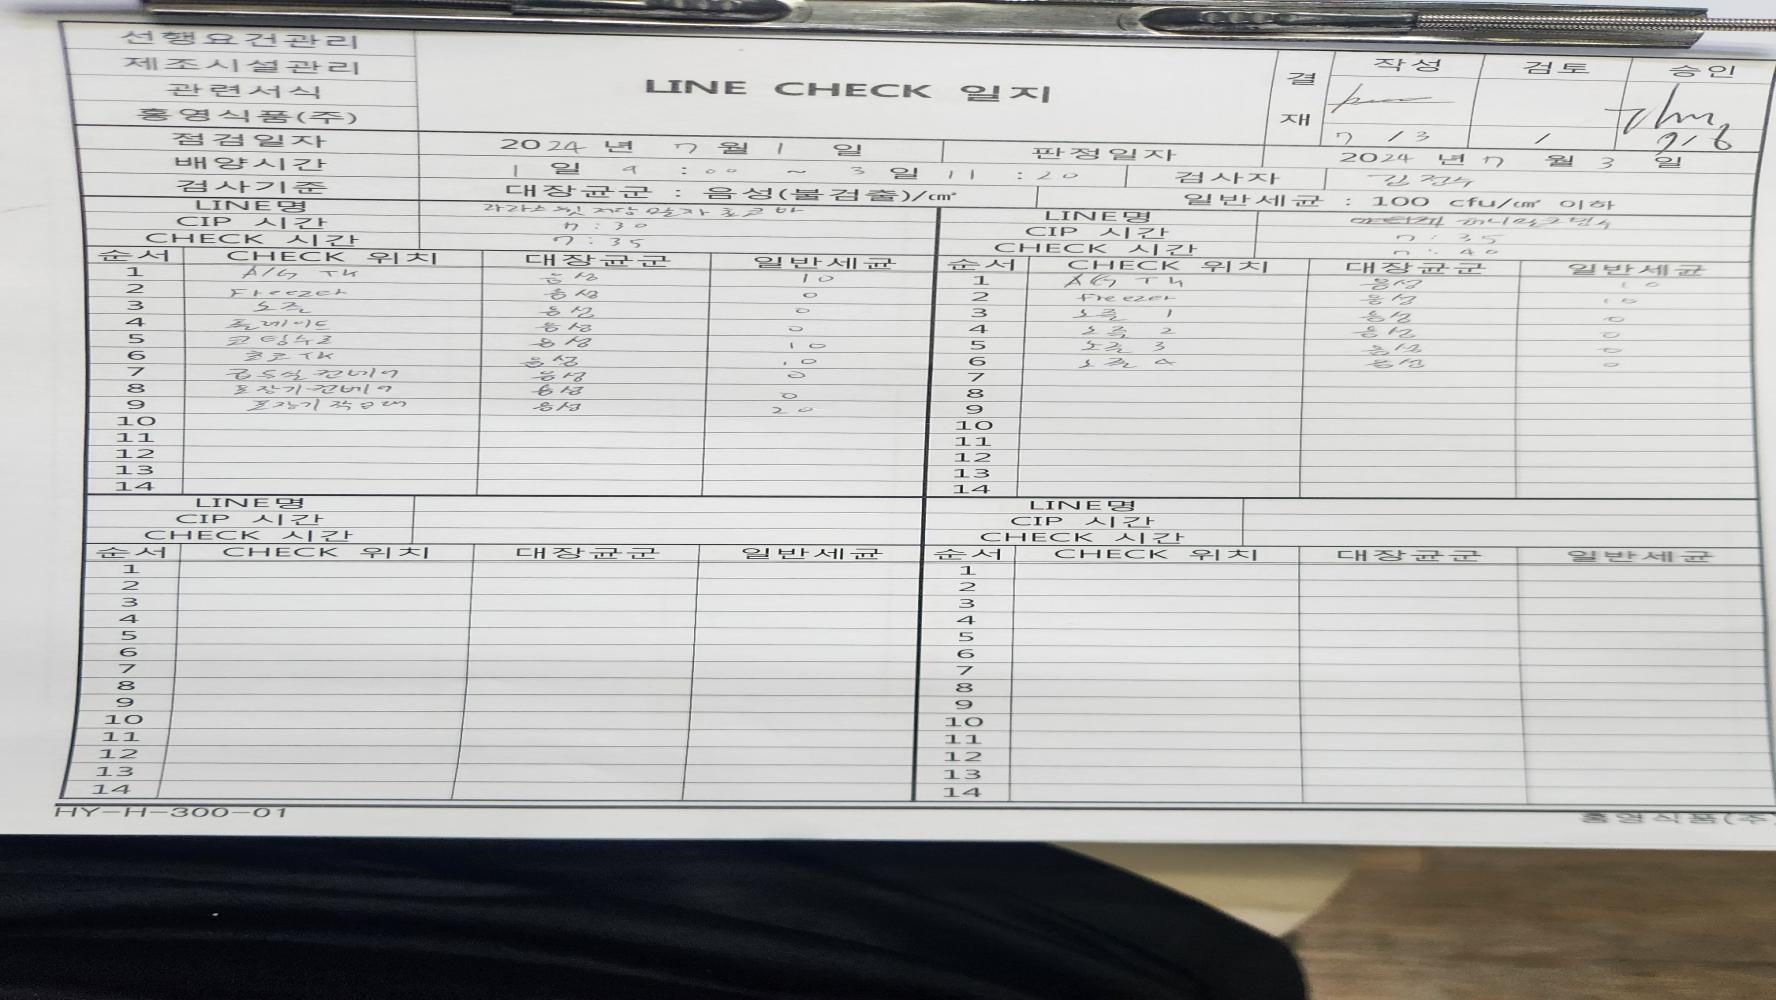 선행요건관리
제조시설관리
관련서식
홍영식품(주)
LINE CHECK 일지
결재 작성 검토 승인
7 / 3 / 7/8
점검일자 2024 년 7 월 1 일 판정일자 2024 년 7 월 3 일
배양시간 1 일 9 :00 ~ 3 일 11 :20 검사자
검사기준 대장균군 : 음성(불검출)/㎠ 일반세균 : 100 cfu/㎠ 이하
LINE명 라라스윗 저당 말차초코바 LINE명
CIP 시간 7:30 CIP 시간 7:35
CHECK 시간 7:35 CHECK 시간 7:40
순서 CHECK 위치 대장균군 일반세균 순서 CHECK 위치 대장균군 일반세균
1 A/G TK 음성 10 1 A/G TK 음성 10
2 Freezer 음성 0 2 Freezer 음성 10
3 노즐 음성 0 3 노즐 1 음성 0
4 플레이드 음성 0 4 노즐 2 음성 0
5 코팅누로 음성 10 5 노즐 3 음성 0
6 초코TK 음성 10 6 노즐 4 음성 0
7 급동실컨베어 음성 0 7
8 포장기컨베어 음성 0 8
9 포장기작업대 음성 20 9
10 10
11 11
12 12
13 13
14 14
LINE명 LINE명
CIP 시간 CIP 시간
CHECK 시간 CHECK 시간
순서 CHECK 위치 대장균군 일반세균 순서 CHECK 위치 대장균군 일반세균
1 1
2 2
3 3
4 4
5 5
6 6
7 7
8 8
9 9
10 10
11 11
12 12
13 13
14 14
HY-H-300-01 홍영식품(주)